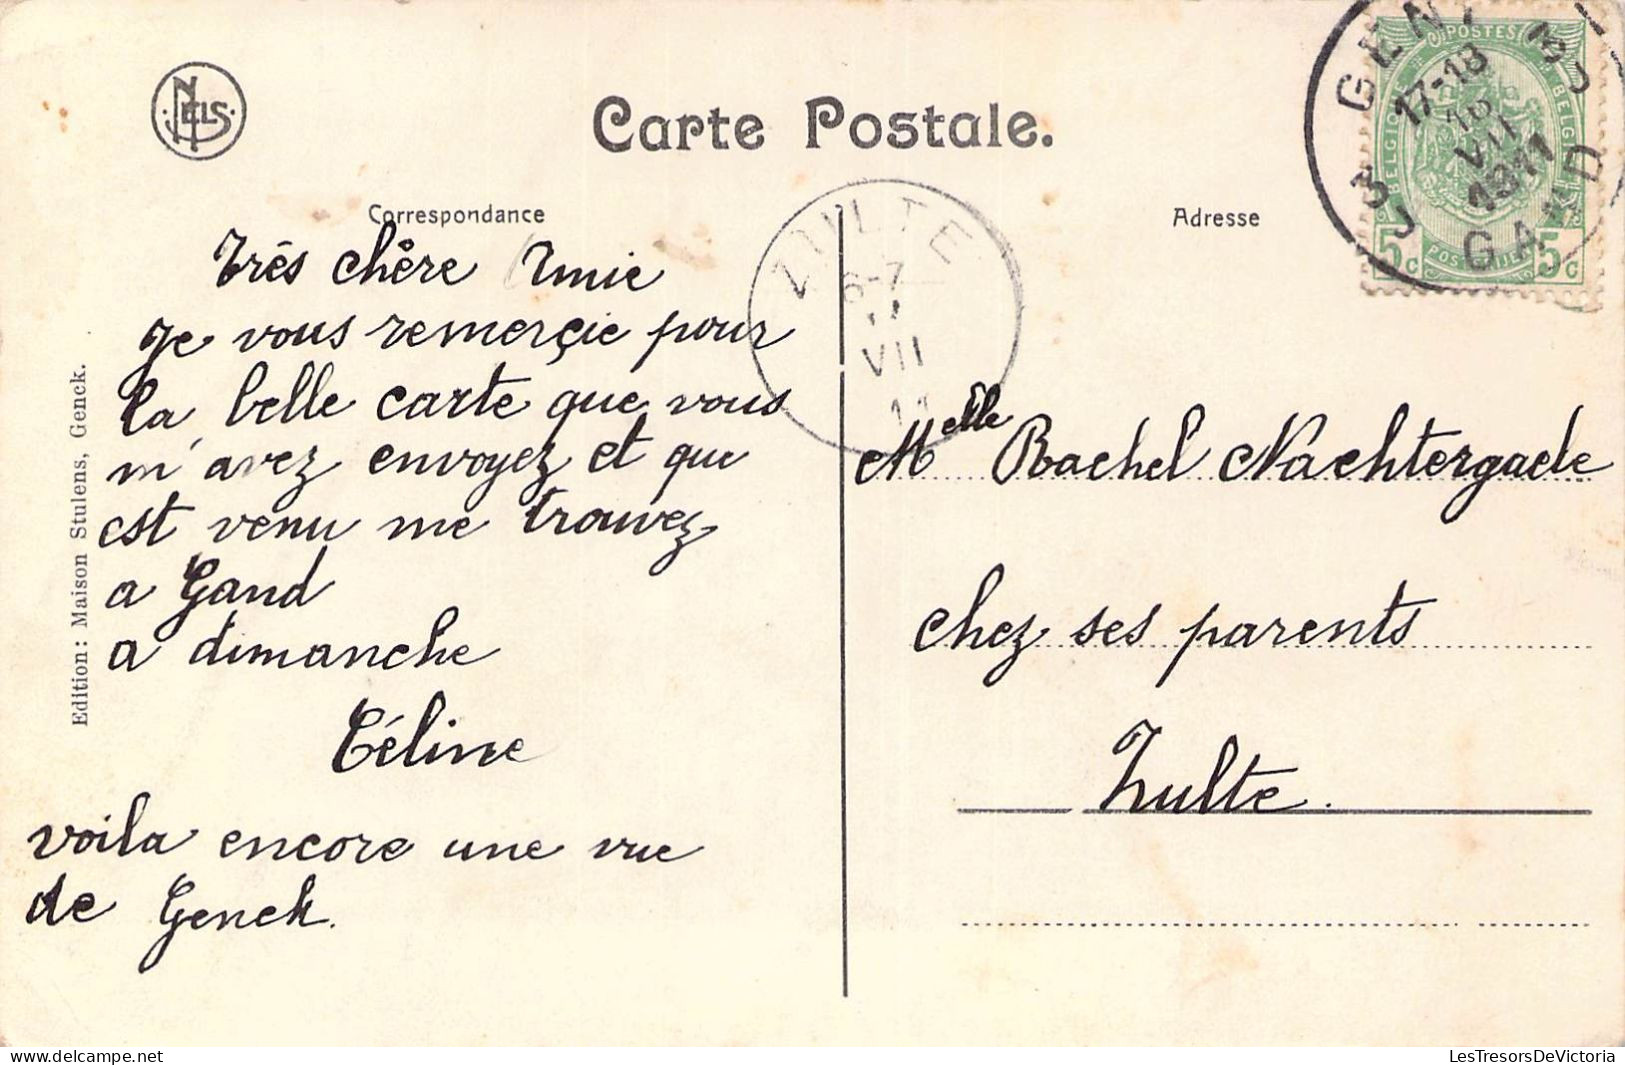 NELS
Carte Postale.
Correspondance
Adresse
POSTES
BELGIQUE
BELGIË
POSTERIJEN
5c
5c
GENT
17-18
VII
1911
GAND
3J
3J
ZULTE
6-7
VII
11
Très chère Amie
Je vous remerçie pour
la belle carte que vous
m'avez envoyez et que
est venu me trouvez
a Gand
a dimanche
Céline
voila encore une vue
de Genck.
Melle Rachel Nachtergaele
chez ses parents
Zulte.
Edition: Maison Stulens, Genck.
LesTresorsDeVictoria